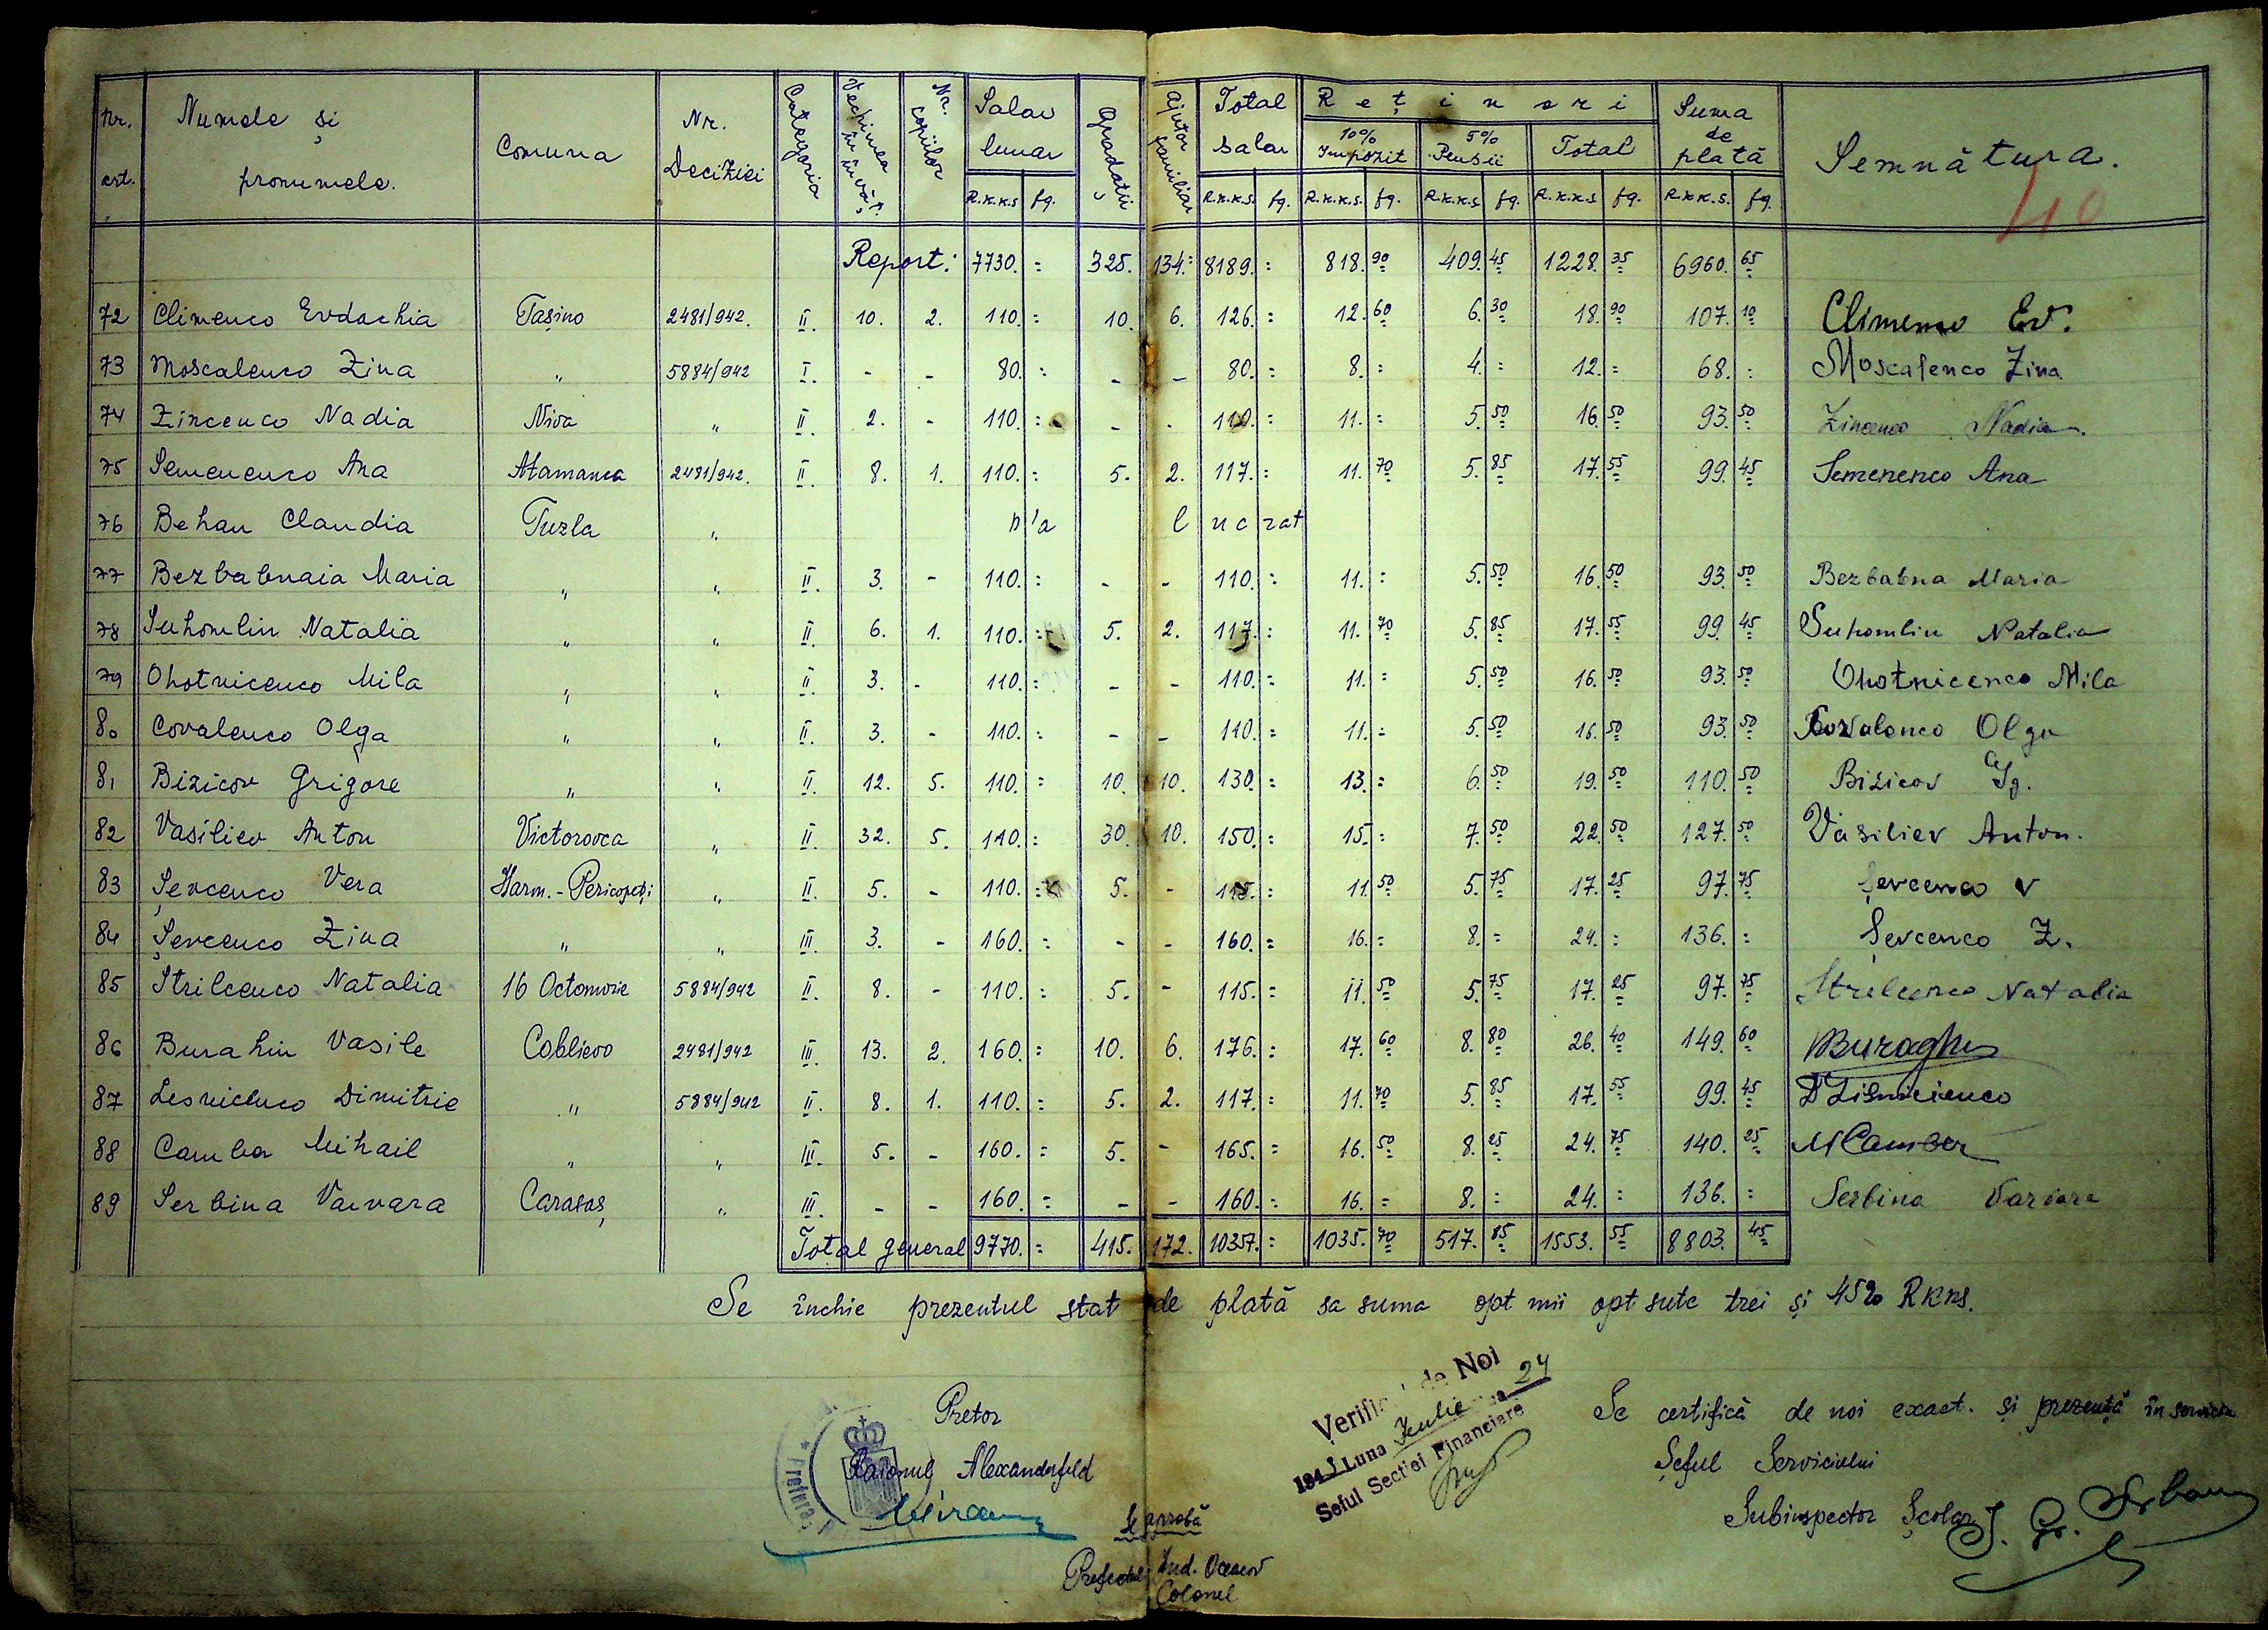 Nr. crt. Numele și pronumele. Comuna Nr. Deciziei Categoria Vechimea în învăț. Nr. copiilor Salar lunar Gradații Ajutor familiar Total salar Rețineri Suma de plată Semnătura.
10% Impozit 5% Pensii Total
R.k.k.s fg. R.k.k.s. fg. R.k.k.s. fg. R.k.k.s fg. R.k.k.s fg. R.k.k.s. fg.
40
Report: 7730. = 325. 134.= 8189. = 818. 90 409. 45 1228. 35 6960. 65
72 Climenco Evdochia Tașino 2481/942. II. 10. 2. 110. = 10. 6. 126. = 12. 60 6. 30 18. 90 107. 10 Climenco Ev.
73 Moscalenco Zina " 5884/942 I. - - 80. = - - 80. = 8. = 4. = 12. = 68. = Moscalenco Zina
74 Zincenco Nadia Niva " II. 2. - 110. = - - 110. = 11. = 5. 50 16. 50 93. 50 Zincenco Nadia
75 Semenenco Ana Atamanca 2481/942. II. 8. 1. 110. = 5. 2. 117. = 11. 70 5. 85 17. 55 99. 45 Semenenco Ana
76 Behan Claudia Tuzla " n'a lucrat
77 Bezbabnaia Maria " " II. 3. - 110. = - - 110. = 11. = 5. 50 16. 50 93. 50 Bezbabna Maria
78 Suhomlin Natalia " " II. 6. 1. 110. = 5. 2. 117. = 11. 70 5. 85 17. 55 99. 45 Suhomlin Natalia
79 Ohotnicenco Mila " " II. 3. - 110. = - - 110. = 11. = 5. 50 16. 50 93. 50 Ohotnicenco Mila
80 Covalenco Olga " " II. 3. - 110. = - - 110. = 11. = 5. 50 16. 50 93. 50 Covalenco Olga
81 Bizicov Grigore " " II. 12. 5. 110. = 10. 10. 130. = 13. = 6. 50 19. 50 110. 50 Bizicov
82 Vasiliev Anton Victorovca " II. 32. 5. 110. = 30. 10. 150. = 15. = 7. 50 22. 50 127. 50 Vasiliev Anton.
83 Șevcenco Vera Harm.-Pericopeți " II. 5. - 110. = 5. - 115. = 11. 50 5. 75 17. 25 97. 75 Șevcenco V
84 Șevcenco Zina " " III. 3. - 160. = - - 160. = 16. = 8. = 24. = 136. = Șevcenco Z.
85 Strilcenco Natalia 16 Octomvrie 5884/942 II. 8. - 110. = 5. - 115. = 11. 50 5. 75 17. 25 97. 75 Strilcenco Natalia
86 Burahin Vasile Coblievo 2481/942 III. 13. 2. 160. = 10. 6. 176. = 17. 60 8. 80 26. 40 149. 60
87 Lesnicenco Dimitrie " 5884/942 II. 8. 1. 110. = 5. 2. 117. = 11. 70 5. 85 17. 55 99. 45
88 Camber Mihail " " III. 5. - 160. = 5. - 165. = 16. 50 8. 25 24. 75 140. 25 M Camber
89 Serbina Varvara Carataș " III. - - 160. = - - 160. = 16. = 8. = 24. = 136. = Serbina Varvara
Total general 9770. = 415. 172. 10357. = 1035. 70 517. 85 1553. 55 8803. 45
Se închie prezentul stat de plată sa suma opt mii opt sute trei și 45% RKKS.
Pretor
Raionul Alexanderfeld
Se aprobă
Prefectul Jud. Oceacov
Colonel
Verificat de Noi
194 Luna Iulie 24
Șeful Secției Financiare
Se certifică de noi exact. și prezență în serviciu
Șeful Serviciului
Subinspector Școlar